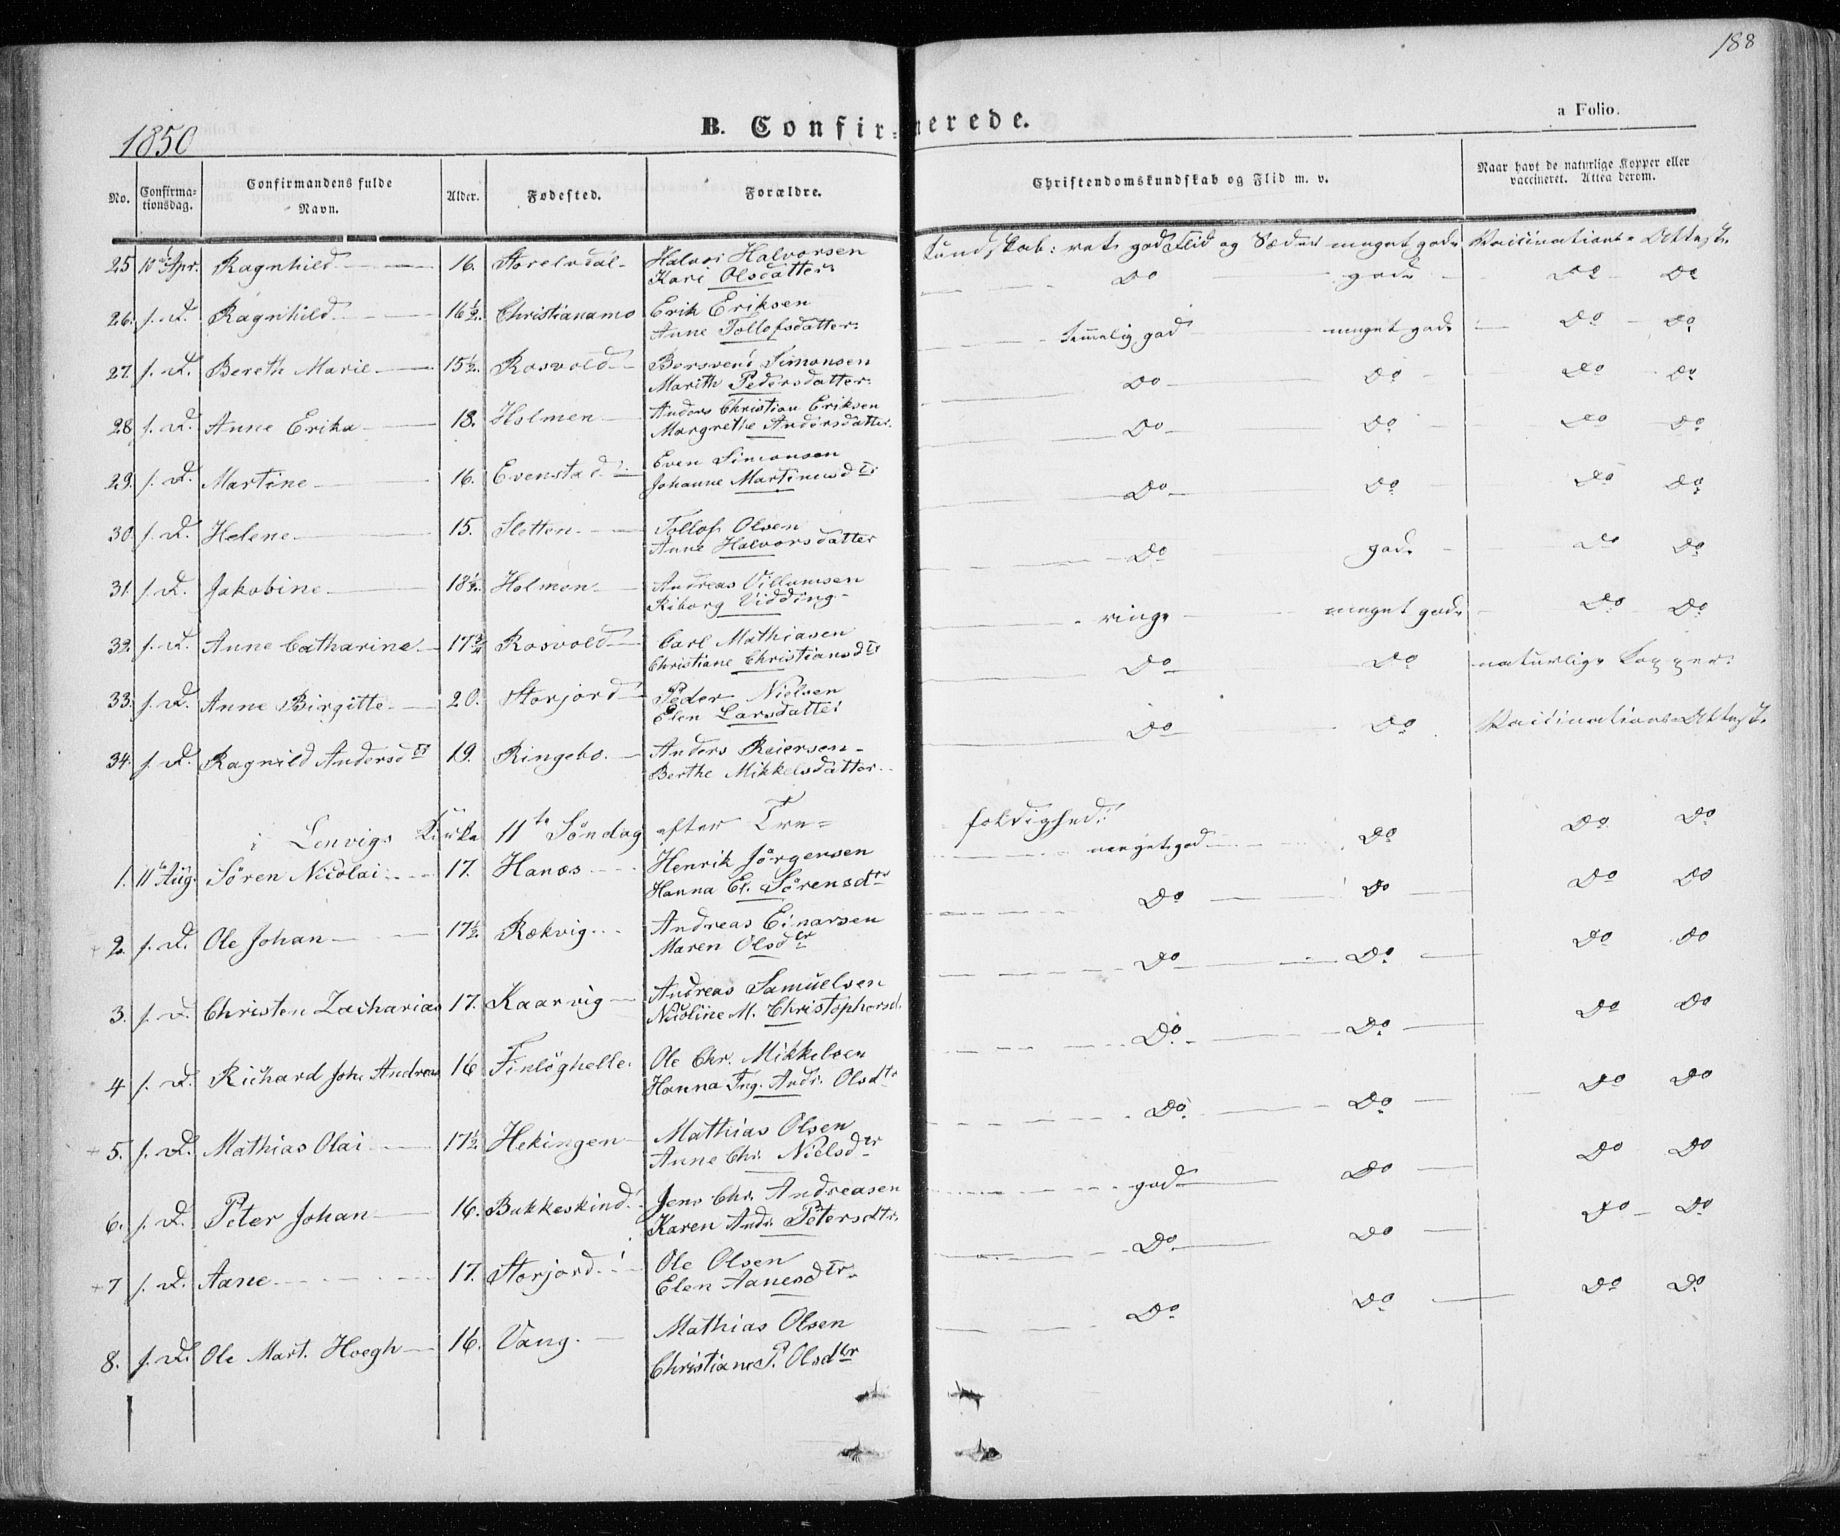 188
1850
B. Confirmerede.
a Folio.
No.
Confirma-
tionsdag.
Confirmandens fulde
Navn.
Alder.
Fødested.
Forældre.
Christendomskundskab og Flid m. v.
Naar havt de naturlige Kopper eller
vaccineret. Attea derom.
25 10de Apr. Ragnhild 16. Storelvdal Halvor Halvorsen Kundskab: ret god Flid og Sæder meget gode Vaccinations Attest.
Kari Olsdatter Do gode Do Do
26. s. D. Ragnhild 16½ Christianamo Erik Eriksen
Anne Tollofsdatter temmelig god meget gode Do Do
27. s. D. Bereth Marie 15½ Rosvold Simonsen
Marith Pedersdatter Do Do Do Do
28 s. D. Anne Erika 18. Holmen Anders Christian Eriksen
Margrethe Andersdatter Do Do Do Do
29. s. D. Martine 16. Evenstad Even Simonsen
Johanne Martinusdtr Do Do Do Do
30. s. D. Helene 15. Sletten Tollof Olsen
Anne Halvorsdatter Do gode Do Do
31. s. D. Jakobine 18½ Holmen Andreas Villumsen
Kiborg Vidding ringe meget gode Do Do
32. s. D. Anne Catharine 17½ Rosvold Carl Mathiasen
Christiane Christiansdtr Do Do naturlige Kopper.
33. s. D. Anne Birgitte 20. Storjord Peder Nielsen
Elen Larsdatter Do Do Vaccinations Attest.
34. s. D. Ragnild Andersdtr 19. Ringebo. Anders Reiersen
Berthe Mikkelsdatter
i Lenvigs Kirke 11te Söndag efter Tre= foldighed. Do Do
1. 11te Aug. Sören Nicolai 17. Hanæs Henrik Jörgensen meget god Do
Hanna El. Sörensdtr Do Do Do Do
2. s. D. Ole Johan 17½ Rækvig Andreas Einarsen
Maren Olsdtr Do Do Do Do
3. s. D. Christen Zacharias 17. Kaarvig Andreas Samuelsen
Nicoline M. Christophersd. Do Do Do Do
4 s. D. Richard Joh. Andreas 16 Finlöghelle Ole Chr. Mikkelsen
Hanna Ing. Andr. Olsdtr Do Do Do Do
5. s. D. Mathias Olai 17½ Hekingen Mathias Olsen
Anne Chr. Nielsdtr god Do Do Do
6. s. D. Peter Johan 16. Bukkeskind Jens Chr. Andreasen
Karen Andr. Petersdtr. Do Do Do Do
7 s. D. Aane 17. Storjord Ole Olsen
Elen Aanesdtr Do Do Do Do
8. s. D. Ole Mart. Hoegh 16. Vang. Mathias Olsen
Christiane P. Olsdtr